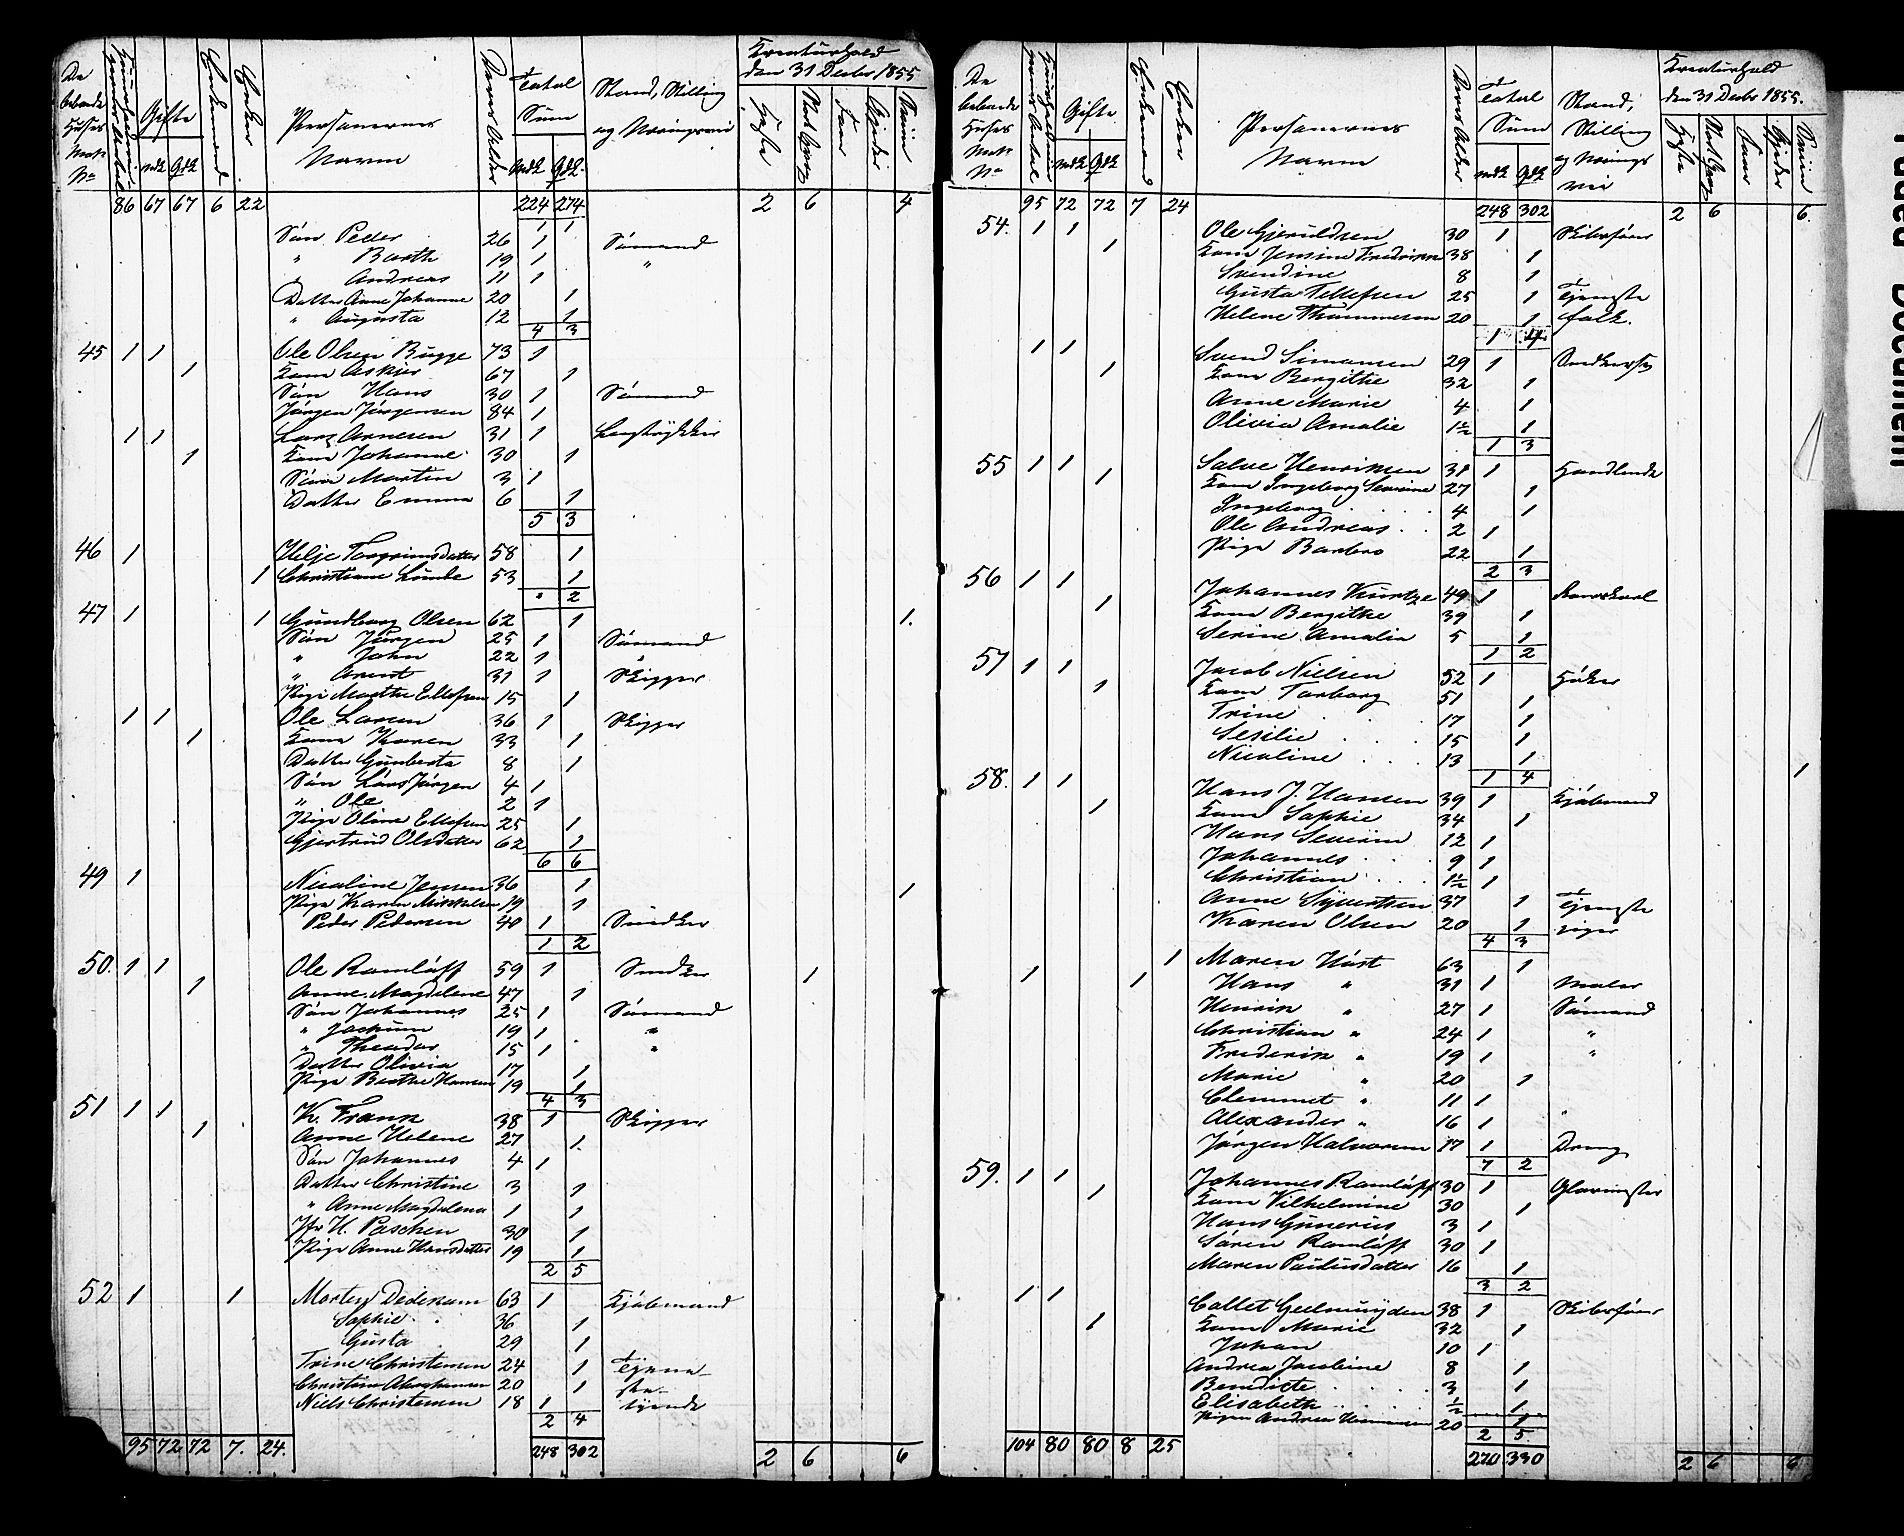 De beboede Huses Matr No
Gifte
mdk Qdk
Enkemænd
Enker
Personernes Navne
Deres Alder
Total Sum
mdk Qdk
Stand, Stilling og Næringsvei
Kreaturhold den 31 Decbr 1855
Heste
Faar
Gjeder
Sviin
86 67 67 6 22 224 274 2 6 4
1 1
Søn Peder 26 1 Sømand
" Barth 19 1 "
" Andreas 11 1
Datter Anne Johanne 20 1
" Augusta 12 1
4 3
45 1 1 Ole Olsen Bugge 73 1
1 Kone Askier 67 1
Søn Hans 30 1 Sømand
Jørgen Jørgensen 84 1
1 1 Lars Arnesen 31 1
1 Kone Johanne 30 1
Søn Martin 3 1
Datter Emma 6 1
5 3
46 1 Helje Torgrimsdatter 58 1
1 Christiane Lunde 53 1
" 2
47 1 1 Gundborg Olsen 62 1 1.
Søn Jørgen 25 1 Sømand
" John 22 1 "
" Arent 31 1 Skipper
Pige Marthe Ellefsen 15 1
1 1 Ole Larsen 36 1 Skipper
1 Kone Karen 33 1
Datter Gunberta 8 1
Søn Lars Jørgen 4 1
" Ole 2 1
Pige Oline Ellefsen 25 1
Gjertrud Olsdatter 62 1
6 6
49 1 Nicoline Jensen 36 1 1
Pige Karen Mikkelsen 19 1
Peder Pedersen 40 1 Snedker
1 2
50. 1 1 Ole Ramløff 59 1 Snedker 1
1 Anne Magdelene 47 1
Søn Johannes 25 1 Sømand
" Jochum 19 1 "
" Theodor 15 1 "
Datter Olivia 17 1
Pige Berthe Hansen 19 1
4 3
51 1 1 K. Frank 38 1 Skipper
1 Anne Helene 27 1.
Søn Johannes 4 1
Datter Christine 3 1
" Anne Magdelena 1 1
Jfr H. Paschen 30 1
Pige Anne Hansdatter 19 1
2 5
52 1 1 Morten Dedekam 63 1 Kjøbmand
Sophie " 36 1
Gusta 29 1
Trine Christensen 24 1 Tjene-
Christine Abrahamsen 20 1 ste-
Niels Christensen 18 1 tyende
2 4
95 72 72 7. 24. 248 302 2 6 6
De beboede Huses Matr No
Gifte
mdk Qdk
Enkemænd
Enker
Personernes Navne
Deres Alder
Total Sum
mdk Qdk
Stand, Stilling og Nærings vei
Kreaturhold den 31 Decbr 1855.
Heste
Faar
Gjeder
Sviin
95 72 72 7 24 248 302 2 6 6.
54. 1 1 Ole Gjeruldsen 30 1 Skibsfører
1 Kone Jensine Fredrikke 38 1
Svendine 8 1
Gusta Tellefsen 25 1 Tjeneste
Helene Thommesen 20 1 folk.
1 4
1 1 Svend Simonsen 29 1
1 Kone Bergithe 32 1
Anne Marie 4 1
Olivia Amalie 1½ 1
1 3
55 1 1 Salve Henriksen 31 1 Handlende
1 Kone Ingeborg Severine 27 1
Ingeborg 4 1
Ole Andreas 2 1
Pige Barbro 22 1
2 3
56 1 1 Johannes Kuntze 49 1
1 Kone Bergitte 39 1
Serine Amalia 5 1
1 2
57 1 1 Jacob Nielsen 52 1 Høker
1 Kone Torborg 51 1
Trine 17 1
Sesilie 15 1
Nicoline 13 1
1 4 1
58. 1 1 Hans J. Hansen 39 1 Kjøbmand
1 Kone Sophie 34 1
Hans Severin 12 1
Johannes 9 1
Christian 1½ 1
Anne Syvertsen 37 1 Tjeneste
Karen Olsen 20 1 piger
4 3
1 Maren Høst 63 1
1 1 Hans " 31 1 Maler
Henrik " 27 1 Sømand
Christian " 24 1 "
Frederik " 19 1 "
Marie " 20 1
Clemmet " 11 1
Alexander " 16 1 "
Jørgen Halvorsen 17 1 Dreng
7 2
59. 1 1 Johannes Ramløff 30 1 Glarmester
1 Kone Vilhelmine 30 1
Hans Gunerius 3 1
Søren Ramløff 30 1
Maren Paulusdatter 16 1
3 2
1 1 Collet Geelmuyden 38 1 Skibsfører
1 Kone Marie 32 1
Johan 10 1
Andrea Jacobine 8 1
Benedicte 3 1
Elisabeth ½ 1
Pigen Andrea Hansen 20 1
2 5.
104 80 80 8 25 270 330 2 6 6